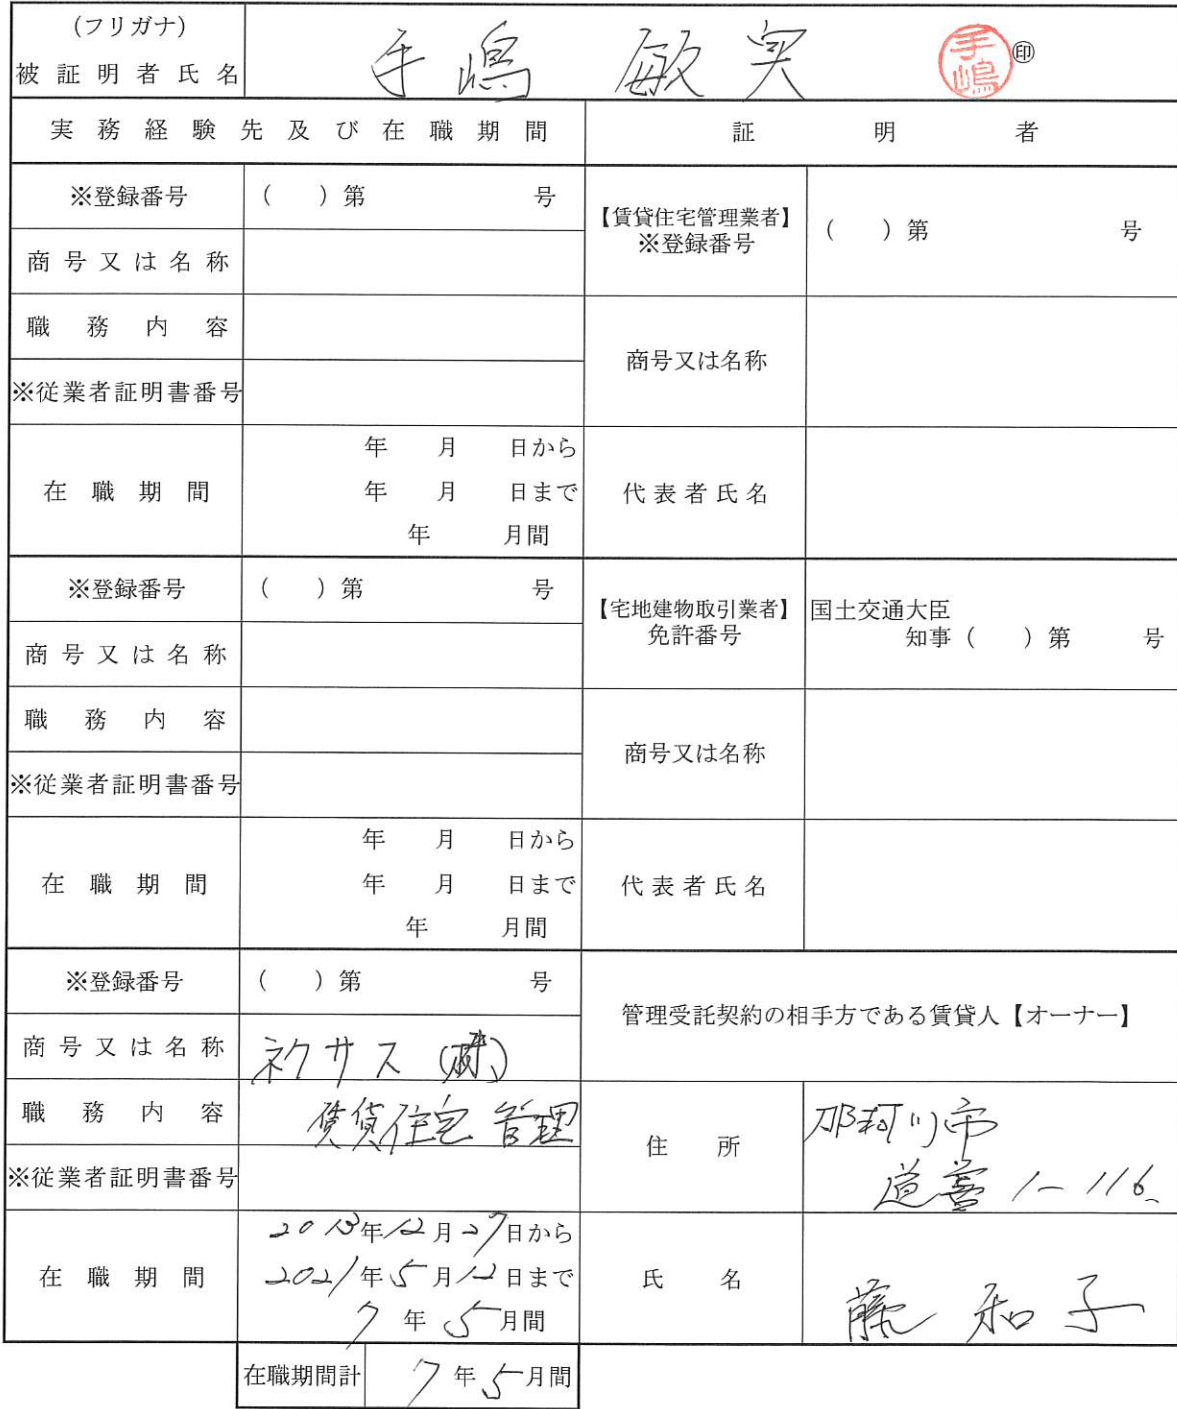 (フリガナ)
被証明者氏名 手嶋 敏実 手嶋 ㊞
実務経験先及び在職期間 証明者
※登録番号 ( )第 号
【賃貸住宅管理業者】
※登録番号 ( )第 号
商号又は名称
職務内容
商号又は名称
※従業者証明書番号
年 月 日から
在職期間 年 月 日まで
年 月間
代表者氏名
※登録番号 ( )第 号
【宅地建物取引業者】
免許番号
国土交通大臣
知事( )第 号
商号又は名称
職務内容
商号又は名称
※従業者証明書番号
年 月 日から
在職期間 年 月 日まで
年 月間
代表者氏名
※登録番号 ( )第 号
管理受託契約の相手方である賃貸人【オーナー】
商号又は名称 ネクサス(株)
職務内容 賃貸住宅管理
※従業者証明書番号
住所 那珂川市
道善1-116
2013年12月27日から
在職期間 2021年5月12日まで
7年5月間
氏名 藤 和子
在職期間計 7年5月間